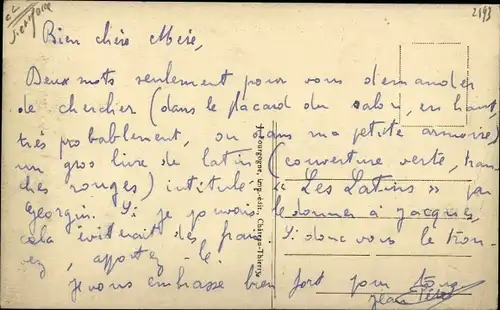 2193
Bien chère Mère,
Deux mots seulement pour vous demander
de chercher (dans le placard du salon, en haut
très probablement, ou dans ma petite armoire)
un gros livre de latin (couverture verte, tran
ches rouges) intitulé « Les Latins » par
Georgin. Si je pouvais le donner à Jacques,
cela éviterait des frais. Si donc vous le trou
vez, apportez-le.
Je vous embrasse bien fort pour tous
Jean
J. Bourgogne, Imp.-édit., Château-Thierry